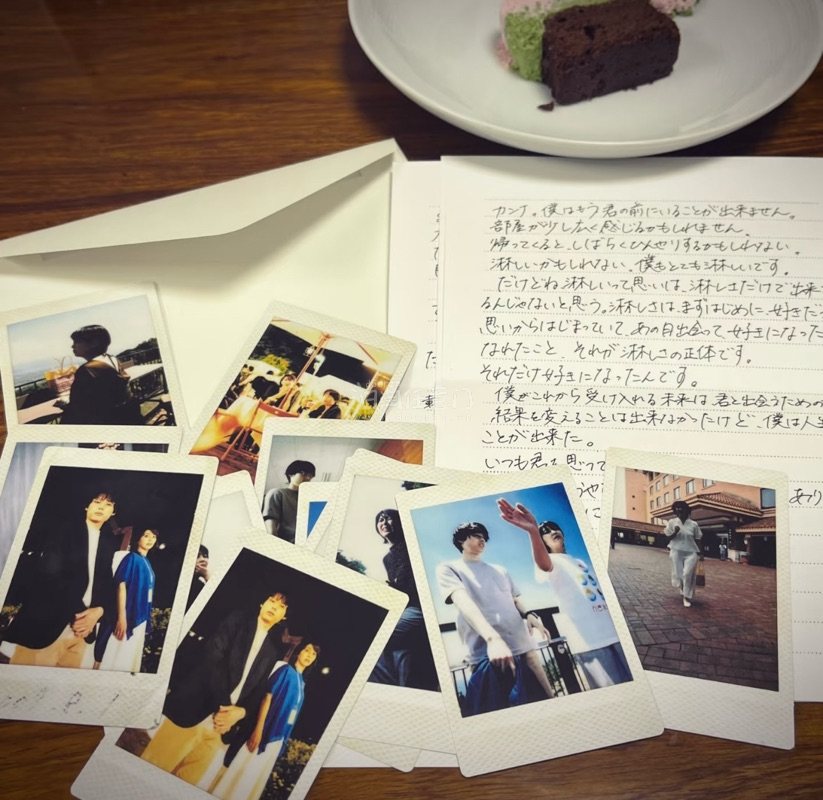 カンナ。僕はもう君の前にいることが出来ません。
部屋が少し広く感じるかもしれません。
帰ってくると、しばらくひんやりするかもしれない。
淋しいかもしれない。僕もとても淋しいです。
だけどね淋しいって思いは、淋しさだけで出来て
るんじゃないと思う。淋しさは、まずはじめに好きだっ
思いからはじまっていて、あの日出会って、好きになった
なれたこと、それが淋しさの正体です。
それだけ好きになったんです。
僕がこれから受け入れる未来は君と出会うための
結果を変えることは出来なかったけど、僕は人生
ことが出来た。
いつも君って思って
あり